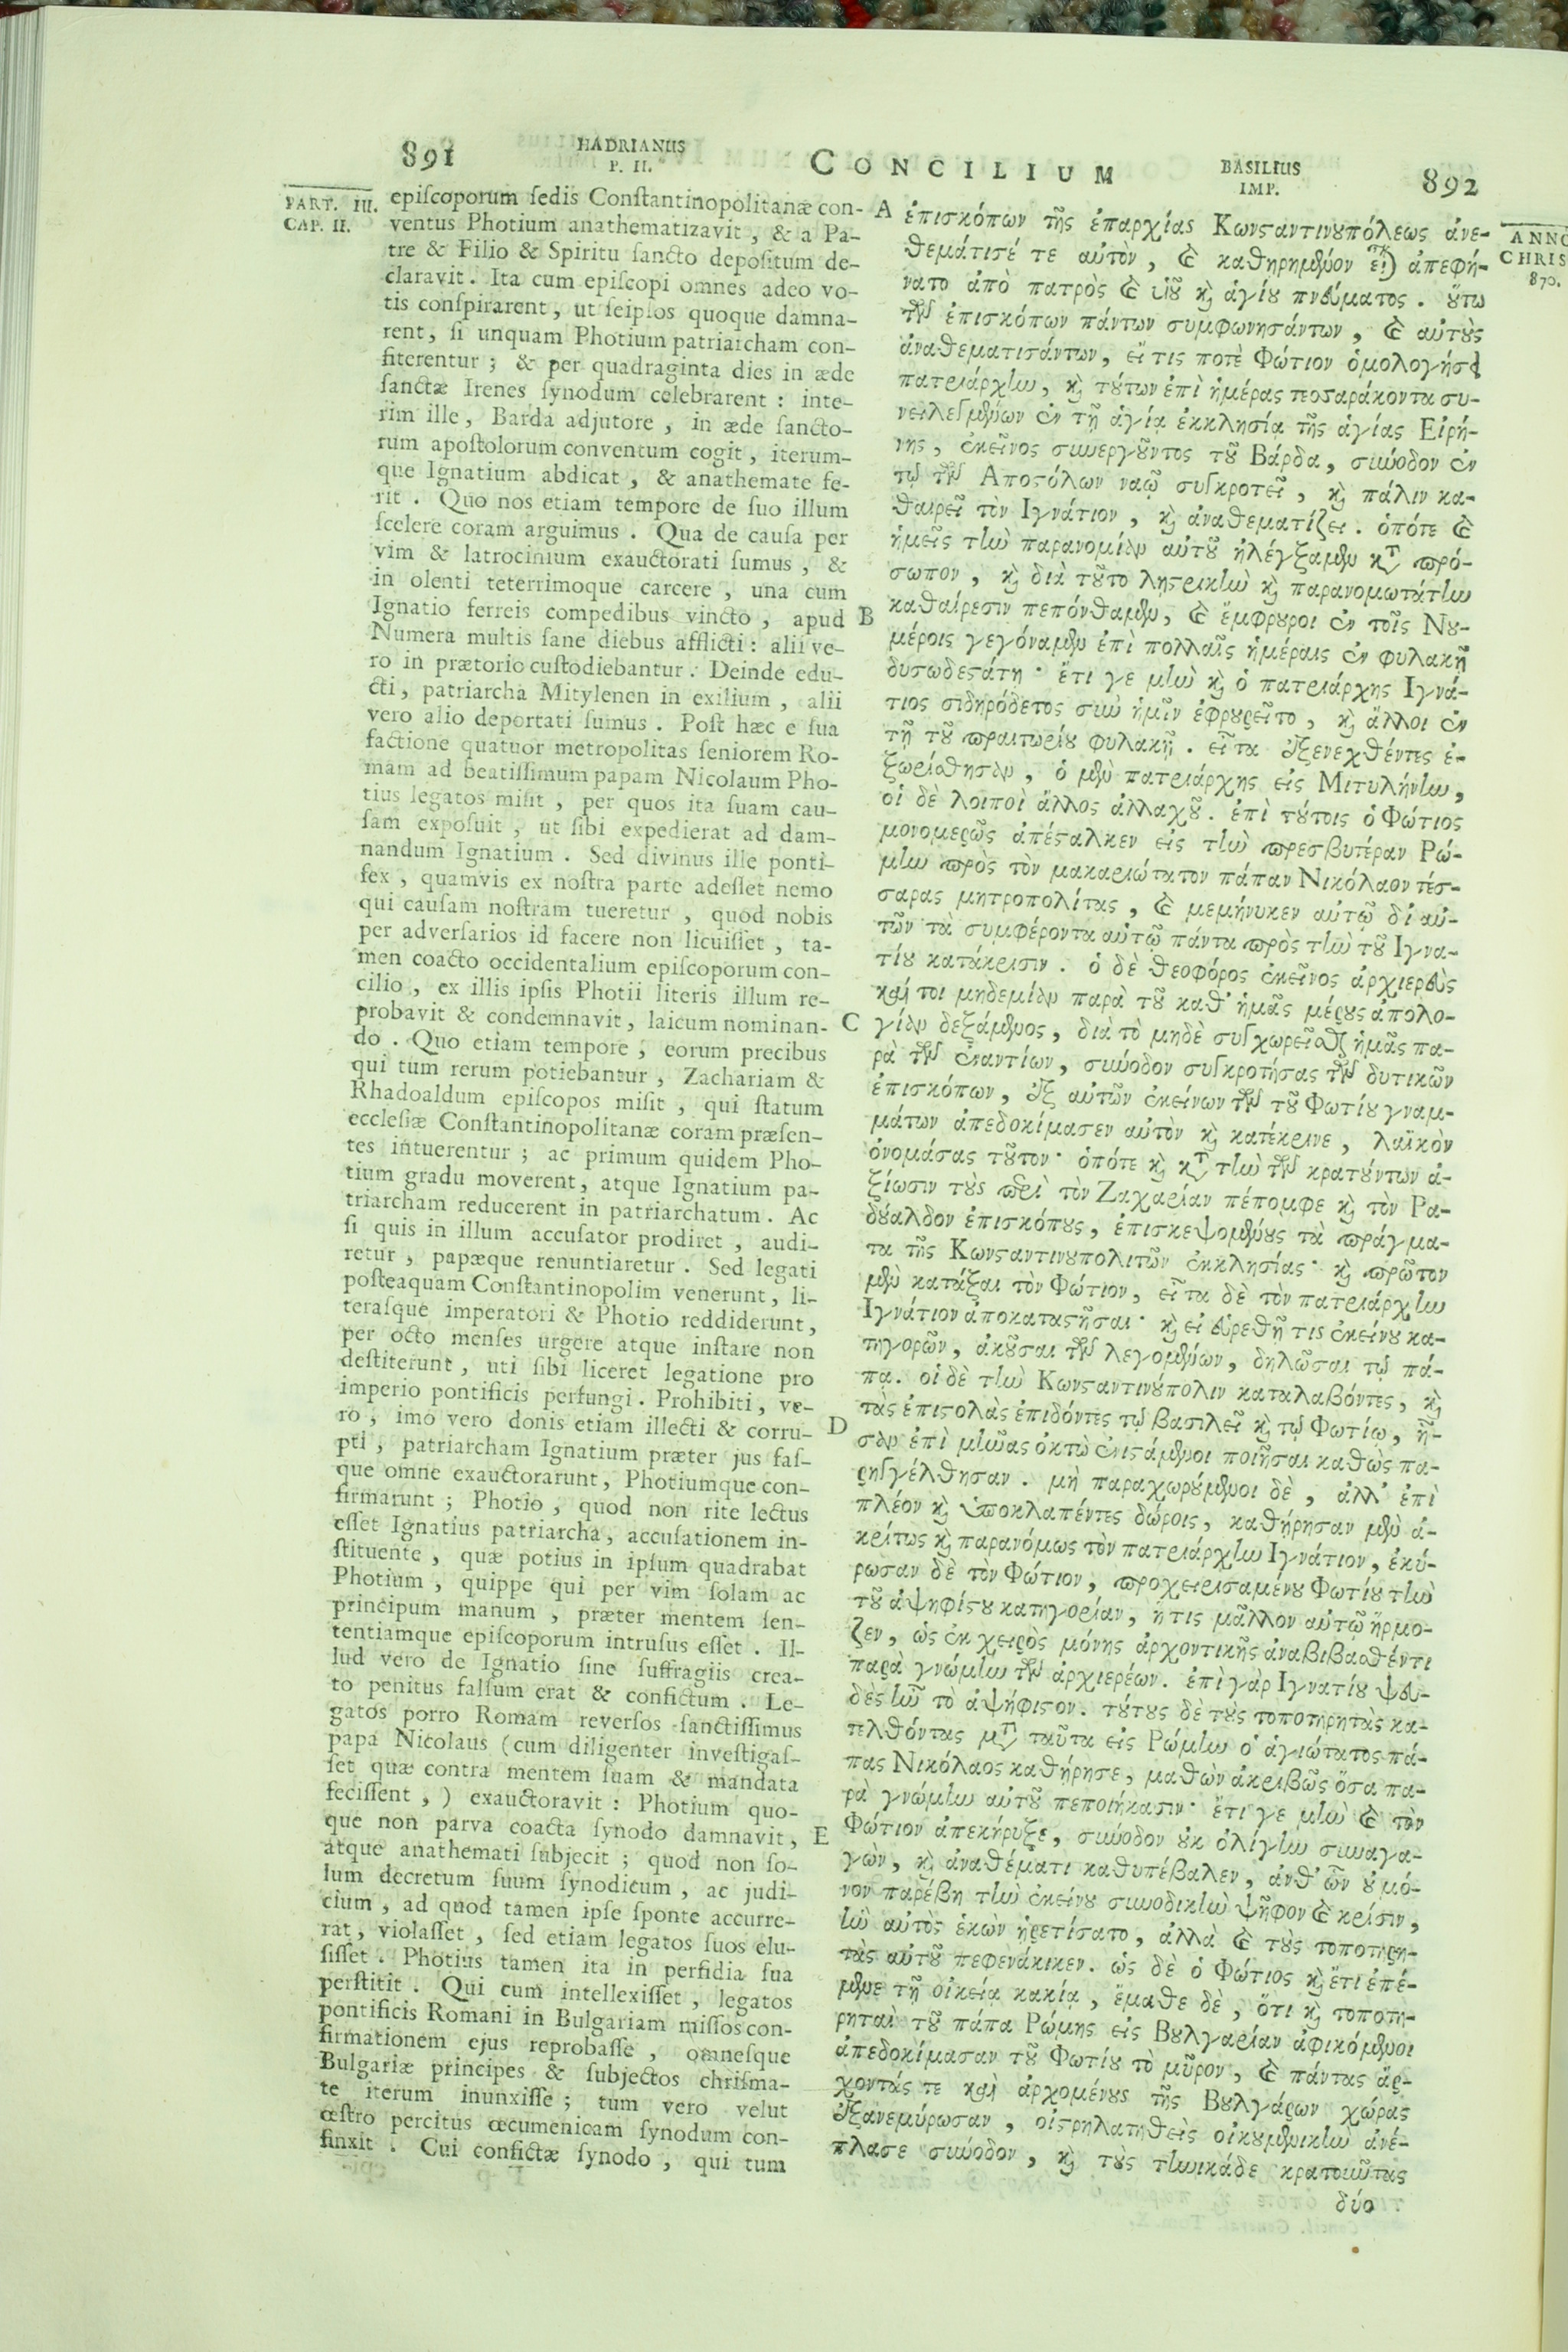 891
HADRIANUS
P. II.
CONCILIUM
BASILIUS
IMP.
892
PART. III.
CAP. II.
epiſcoporum ſedis Conſtantinopolitanæ con-
ventus Photium anathematizavit, & a Pa-
tre & Filio & Spiritu ſancto depoſitum de-
claravit. Ita cum epiſcopi omnes adeo vo-
tis conſpirarent, ut ſeipſos quoque damna-
rent, ſi unquam Photium patriarcham con-
fiterentur; & per quadraginta dies in æde
ſanctæ Irenes ſynodum celebrarent: inte-
rim ille, Barda adjutore, in æde ſancto-
rum apoſtolorum conventum cogit, iterum-
que Ignatium abdicat, & anathemate fe-
rit. Quo nos etiam tempore de ſuo illum
ſcelere coram arguimus. Qua de cauſa per
vim & latrocinium exauctorati ſumus, &
in olenti teterrimoque carcere, una cum
Ignatio ferreis compedibus vincto, apud
Numera multis ſane diebus afflicti: alii ve-
ro in prætorio cuſtodiebantur. Deinde edu-
cti, patriarcha Mitylenen in exilium, alii
vero alio deportati ſumus. Poſt hæc e ſua
factione quatuor metropolitas ſeniorem Ro-
mam ad beatiſſimum papam Nicolaum Pho-
tius legatos miſit, per quos ita ſuam cau-
ſam expoſuit, ut ſibi expedierat ad dam-
nandum Ignatium. Sed divinus ille ponti-
fex, quamvis ex noſtra parte adeſſet nemo
qui cauſam noſtram tueretur, quod nobis
per adverſarios id facere non licuiſſet, ta-
men coacto occidentalium epiſcoporum con-
cilio, ex illis ipſis Photii literis illum re-
probavit & condemnavit, laicum nominan-
do. Quo etiam tempore, eorum precibus
qui tum rerum potiebantur, Zachariam &
Rhadoaldum epiſcopos miſit, qui ſtatum
eccleſiæ Conſtantinopolitanæ coram præſen-
tes intuerentur; ac primum quidem Pho-
tium gradu moverent, atque Ignatium pa-
triarcham reducerent in patriarchatum. Ac
ſi quis in illum accuſator prodiret, audi-
retur, papæque renuntiaretur. Sed legati
poſteaquam Conſtantinopolim venerunt, li-
teraſque imperatori & Photio reddiderunt,
per octo menſes urgere atque inſtare non
deſtiterunt, uti ſibi liceret legatione pro
imperio pontificis perfungi. Prohibiti, ve-
ro, imo vero donis etiam illecti & corru-
pti, patriarcham Ignatium præter jus faſ-
que omne exauctorarunt, Photiumque con-
firmarunt; Photio, quod non rite lectus
eſſet Ignatius patriarcha, accuſationem in-
ſtituente, quæ potius in ipſum quadrabat
Photium, quippe qui per vim ſolam ac
principum manum, præter mentem ſen-
tentiamque epiſcoporum intruſus eſſet. Il-
lud vero de Ignatio ſine ſuffragiis crea-
to penitus falſum erat & confictum. Le-
gatos porro Romam reverſos ſanctiſſimus
papa Nicolaus (cum diligenter inveſtigaſ-
ſet quæ contra mentem ſuam & mandata
feciſſent,) exauctoravit: Photium quo-
que non parva coacta ſynodo damnavit,
atque anathemati ſubjecit; quod non ſo-
lum decretum ſuum ſynodicum, ac judi-
cium, ad quod tamen ipſe ſponte accurre-
rat, violaſſet, ſed etiam legatos ſuos elu-
ſiſſet. Photius tamen ita in perfidia ſua
perſtitit. Qui cum intellexiſſet, legatos
pontificis Romani in Bulgariam miſſos con-
firmationem ejus reprobaſſe, omneſque
Bulgariæ principes & ſubjectos chriſma-
te iterum inunxiſſe; tum vero velut
œſtro percitus œcumenicam ſynodum con-
finxit. Cui confictæ ſynodo, qui tum
A
B
C
D
E
ἐπισκόπων τῆς ἐπαρχίας Κωνσταντινουπόλεως ἀνε-
θεμάτισέ τε αὐτὸν, καὶ καθηρημένον εἶναι ἀπεφή-
νατο ἀπὸ πατρὸς καὶ υἱοῦ καὶ ἁγίου πνεύματος. οὕτω
τῶν ἐπισκόπων πάντων συμφωνησάντων, καὶ αὐτοὺς
ἀναθεματισάντων, εἴ τις ποτὲ Φώτιον ὁμολογήσει
πατριάρχην, καὶ τούτων ἐπὶ ἡμέρας τεσσαράκοντα συ-
νειλεγμένων ἐν τῇ ἁγίᾳ ἐκκλησίᾳ τῆς ἁγίας Εἰρή-
νης, ἐκεῖνος συνεργοῦντος τοῦ Βάρδα, σύνοδον ἐν
τῷ τῶν Αποστόλων ναῷ συγκροτεῖ, καὶ πάλιν κα-
θαιρεῖ τὸν Ιγνάτιον, καὶ ἀναθεματίζει. ὁπότε καὶ
ἡμεῖς τὴν παρανομίαν αὐτοῦ ἠλέγξαμεν κατὰ πρό-
σωπον, καὶ διὰ τοῦτο λῃστρικὴν καὶ παρανομωτάτην
καθαίρεσιν πεπόνθαμεν, καὶ ἔμφρουροι ἐν τοῖς Νου-
μέροις γεγόναμεν ἐπὶ πολλαῖς ἡμέραις ἐν φυλακῇ
δυσωδεστάτῃ· ἔτι γε μὴν καὶ ὁ πατριάρχης Ιγνά-
τιος σιδηρόδετος σὺν ἡμῖν ἐφρουρεῖτο, καὶ ἄλλοι ἐν
τῇ τοῦ πραιτωρίου φυλακῇ. εἶτα ἐξενεχθέντες ἐ-
ξωρίσθησαν, ὁ μὲν πατριάρχης εἰς Μιτυλήνην,
οἱ δὲ λοιποὶ ἄλλος ἀλλαχοῦ. ἐπὶ τούτοις ὁ Φώτιος
μονομερῶς ἀπέσταλκεν εἰς τὴν πρεσβυτέραν Ρώ-
μην πρὸς τὸν μακαριώτατον πάπαν Νικόλαον τέσ-
σαρας μητροπολίτας, καὶ μεμήνυκεν αὐτῷ δι' αὐ-
τῶν τὰ συμφέροντα αὐτῷ πάντα πρὸς τὴν τοῦ Ιγνα-
τίου κατάκρισιν. ὁ δὲ θεοφόρος ἐκεῖνος ἀρχιερεὺς
καί τοι μηδεμίαν παρὰ τοῦ καθ' ἡμᾶς μέρους ἀπολο-
γίαν δεξάμενος, διὰ τὸ μηδὲ συγχωρεῖσθαι ἡμᾶς πα-
ρὰ τῶν ἐναντίων, σύνοδον συγκροτήσας τῶν δυτικῶν
ἐπισκόπων, ἐξ αὐτῶν ἐκείνων τῶν τοῦ Φωτίου γραμ-
μάτων ἀπεδοκίμασεν αὐτὸν καὶ κατέκρινε, λαϊκὸν
ὀνομάσας τοῦτον· ὁπότε καὶ κατὰ τὴν τῶν κρατούντων ἀ-
ξίωσιν τοὺς περὶ τὸν Ζαχαρίαν πέπομφε καὶ τὸν Ρα-
δούαλδον ἐπισκόπους, ἐπισκεψομένους τὰ πράγμα-
τα τῆς Κωνσταντινουπολιτῶν ἐκκλησίας· καὶ πρῶτον
μὲν κατάξαι τὸν Φώτιον, εἶτα δὲ τὸν πατριάρχην
Ιγνάτιον ἀποκαταστῆσαι· καὶ εἰ εὑρεθῇ τις ἐκείνου κα-
τηγορῶν, ἀκοῦσαι τῶν λεγομένων, δηλῶσαι τῷ πά-
πᾳ. οἱ δὲ τὴν Κωνσταντινούπολιν καταλαβόντες, καὶ
τὰς ἐπιστολὰς ἐπιδόντες τῷ βασιλεῖ καὶ τῷ Φωτίῳ, ἦ-
σαν ἐπὶ μῆνας ὀκτὼ ἐνιστάμενοι ποιῆσαι καθὼς πα-
ρηγγέλθησαν. μὴ παραχωρούμενοι δὲ, ἀλλ' ἐπὶ
πλέον καὶ ὑποκλαπέντες δώροις, καθῄρησαν μὲν ἀ-
κρίτως καὶ παρανόμως τὸν πατριάρχην Ιγνάτιον, ἐκύ-
ρωσαν δὲ τὸν Φώτιον, προχειρισαμένου Φωτίου τὴν
τοῦ ἀψηφίστου κατηγορίαν, ἥτις μᾶλλον αὐτῷ ἥρμο-
ζεν, ὡς ἐκ χειρὸς μόνης ἀρχοντικῆς ἀναβιβασθέντι
παρὰ γνώμην τῶν ἀρχιερέων. ἐπὶ γὰρ Ιγνατίου ψευ-
δὲς ἦν τὸ ἀψήφιστον. τούτους δὲ τοὺς τοποτηρητὰς κα-
τελθόντας μετὰ ταῦτα εἰς Ρώμην ὁ ἁγιώτατος πά-
πας Νικόλαος καθῄρησε, μαθὼν ἀκριβῶς ὅσα πα-
ρὰ γνώμην αὐτοῦ πεποιήκασιν· ἔτι γε μὴν καὶ τὸν
Φώτιον ἀπεκήρυξε, σύνοδον οὐκ ὀλίγην συναγα-
γὼν, καὶ ἀναθέματι καθυπέβαλεν, ἀνθ' ὧν οὐ μό-
νον παρέβη τὴν ἐκείνου συνοδικὴν ψῆφον καὶ κρίσιν,
ἣν αὐτὸς ἑκὼν ᾑρετίσατο, ἀλλὰ καὶ τοὺς τοποτηρη-
τὰς αὐτοῦ πεφενάκικεν. ὡς δὲ ὁ Φώτιος καὶ ἔτι ἐπέ-
μενε τῇ οἰκείᾳ κακίᾳ, ἔμαθε δὲ, ὅτι καὶ τοποτη-
ρηταὶ τοῦ πάπα Ρώμης εἰς Βουλγαρίαν ἀφικόμενοι
ἀπεδοκίμασαν τοῦ Φωτίου τὸ μῦρον, καὶ πάντας ἄρ-
χοντάς τε καὶ ἀρχομένους τῆς Βουλγάρων χώρας
ἐξανεμύρωσαν, οἰστρηλατηθεὶς οἰκουμενικὴν ἀνέ-
πλασε σύνοδον, καὶ τοὺς τηνικάδε κρατοῦντας
δύο
ANNO
CHRIS
870.